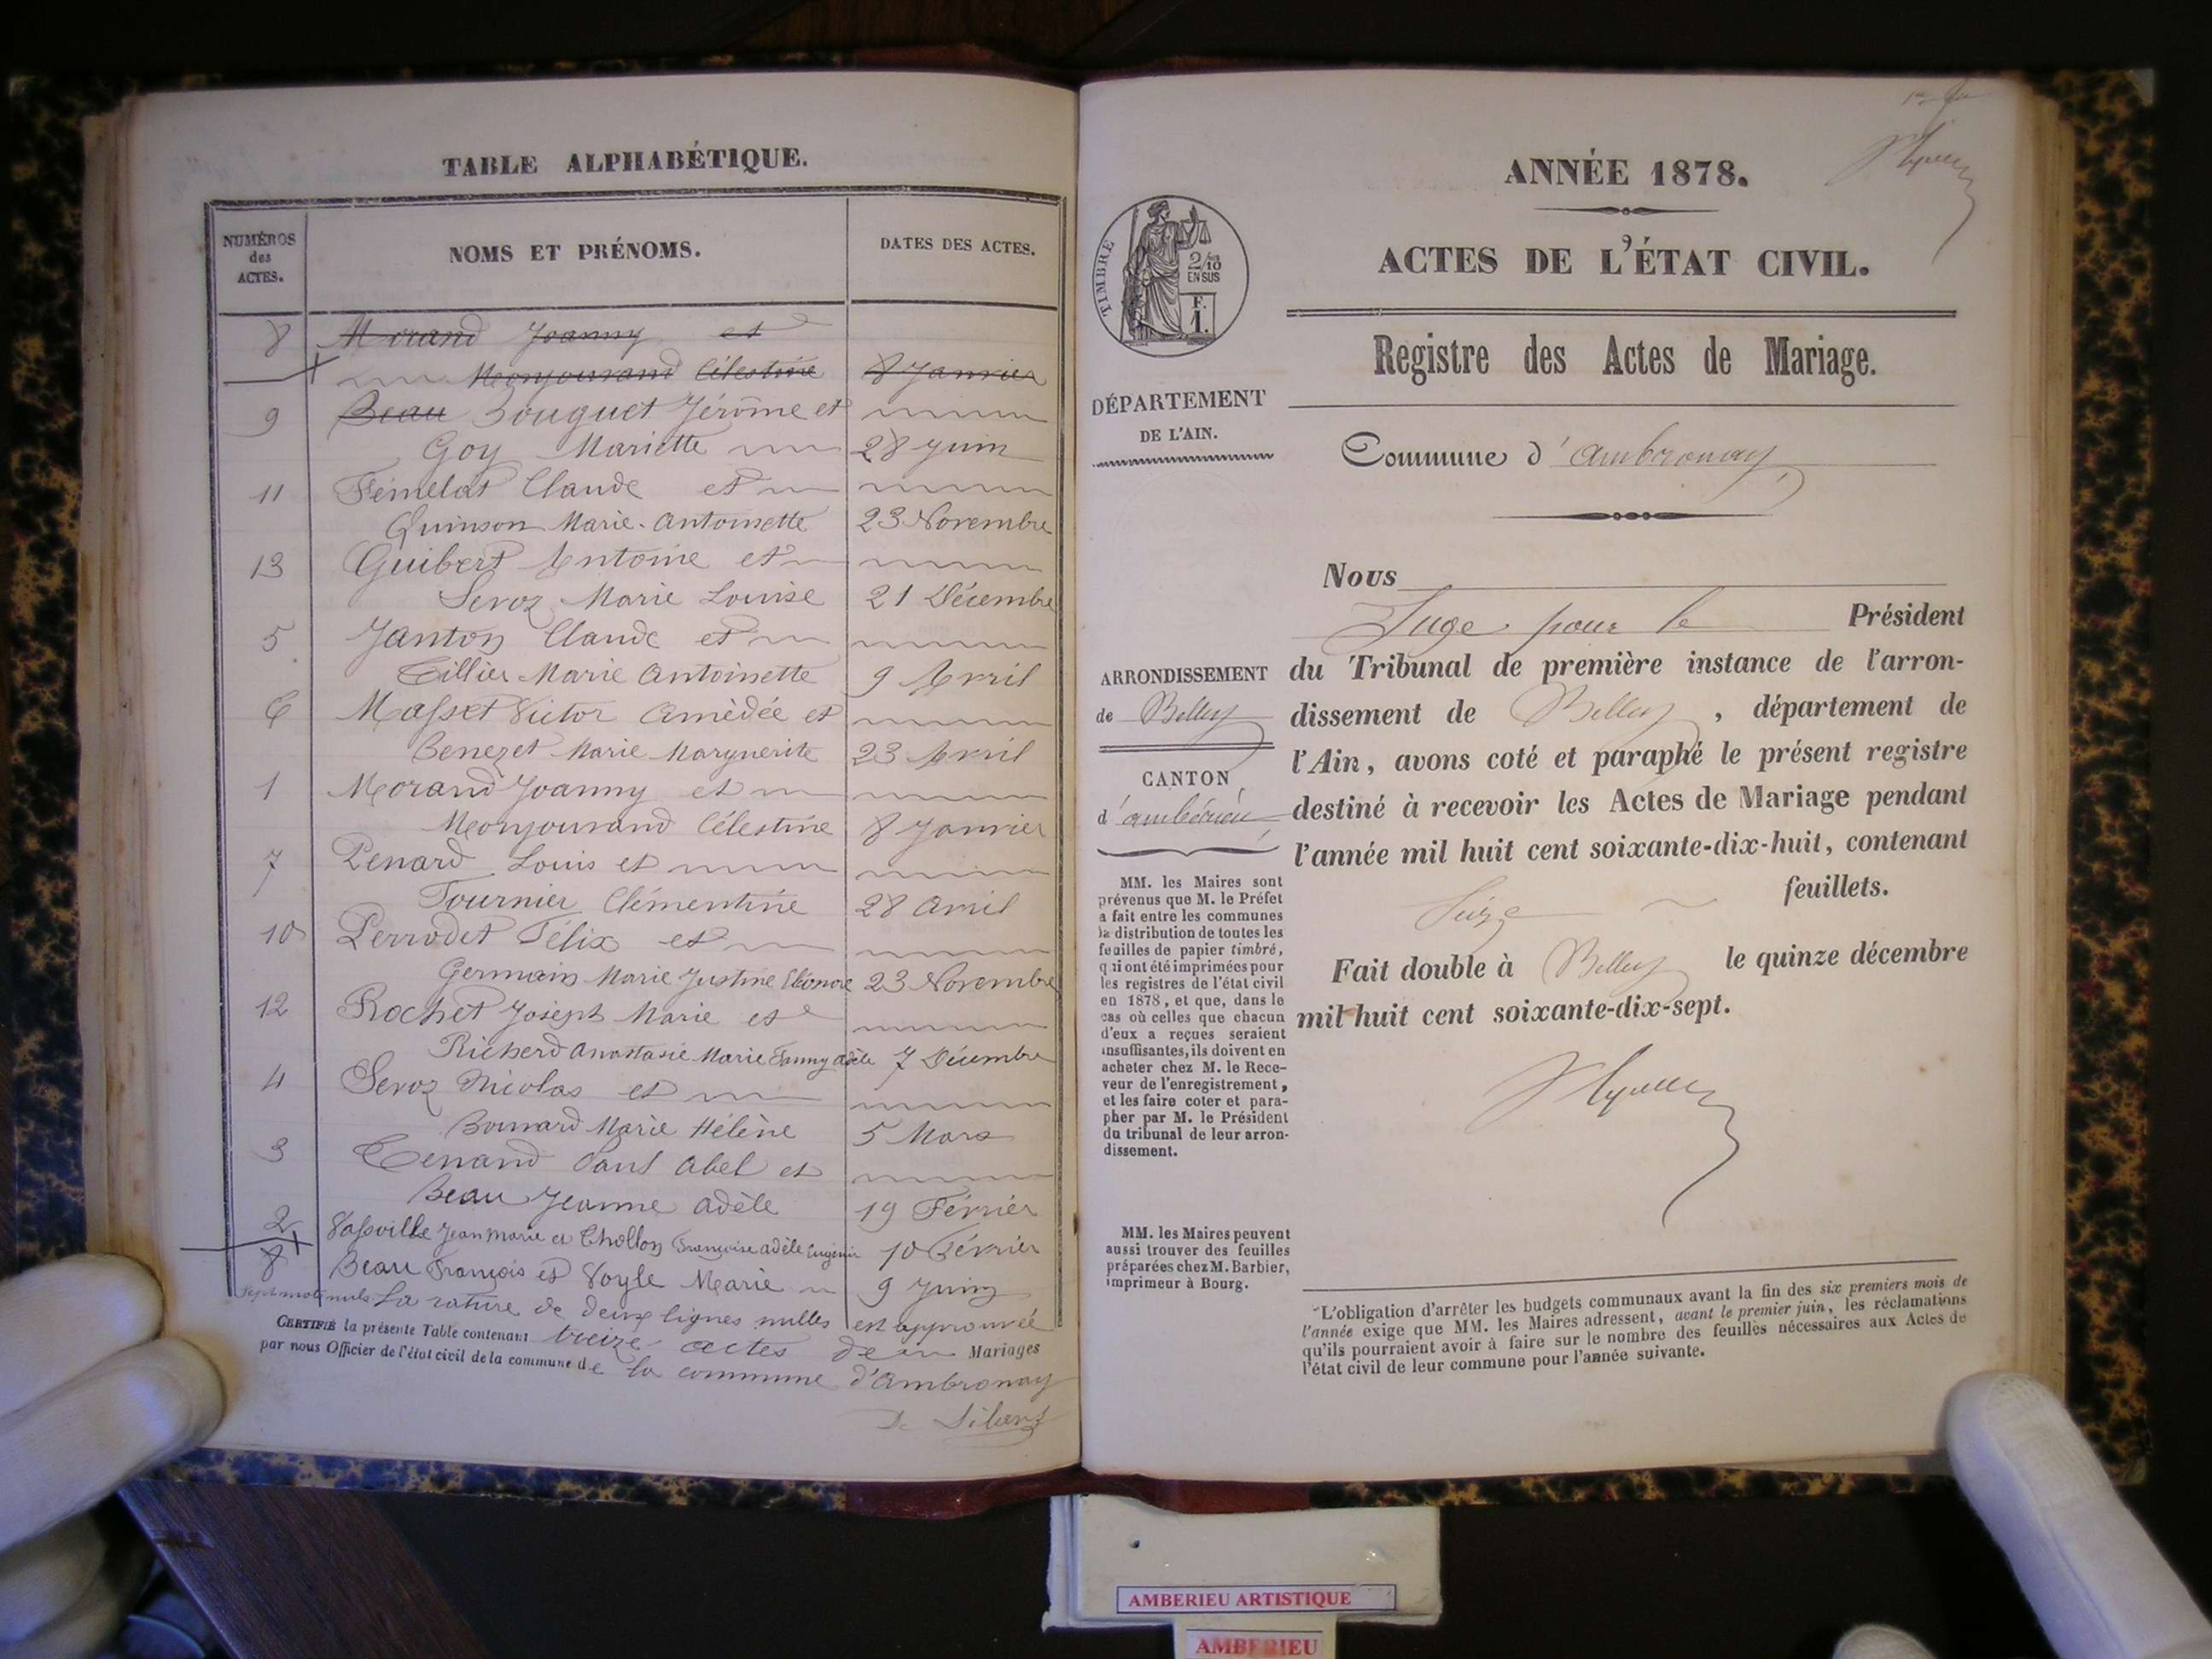 TABLE ALPHABÉTIQUE.
NUMÉROS des ACTES. NOMS ET PRÉNOMS. DATES DES ACTES.
8 Morand Joanny et
Monjourand Célestine 8 Janvier
9 Beau Bouguet Jérôme et
Goy Mariette 28 Juin
11 Fémelat Claude et
Quinson Marie-Antoinette 23 Novembre
13 Guibert Antoine et
Servoz Marie Louise 21 Décembre
5 Janton Claude et
Tillier Marie Antoinette 9 Avril
6 Masset Victor Amèdée et
Benezet Marie Marguerite 23 Avril
1 Morand Joanny et
Monjourand Célestine 8 Janvier
7 Penard Louis et
Tournier Clémentine 28 Avril
10 Perrodet Félix et
Germain Marie Justine Eléonore 23 Novembre
12 Rochet Joseph Marie et
Richerd Anastasie Marie Fanny Adèle 7 Décembre
4 Servoz Nicolas et
Bonnard Marie Hélène 5 Mars
3 Tenand Paul Abel et
Beau Jeanne Adèle 19 Février
2 Vassville Jean Marie et Chollon Françoise Adèle Eugénie 10 Février
8 Beau François et Voyle Marie 9 Juin
Sept mots nuls La rature de deux lignes nulles est approuvée
CERTIFIÉ la présente Table contenant treize actes de Mariages
par nous Officier de l'état civil de la commune de la commune d'Ambronay
ANNÉE 1878.
ACTES DE L'ÉTAT CIVIL.
TIMBRE
2/10 EN SUS
F. 1.
Registre des Actes de Mariage.
DÉPARTEMENT
DE L'AIN.
Commune d'Ambronay
Nous
Juge pour le Président
ARRONDISSEMENT
de Belley
du Tribunal de première instance de l'arron-
dissement de Belley, département de
l'Ain, avons coté et paraphé le présent registre
CANTON
d'ambérieu
destiné à recevoir les Actes de Mariage pendant
l'année mil huit cent soixante-dix-huit, contenant
Seize feuillets.
Fait double à Belley le quinze décembre
mil huit cent soixante-dix-sept.
MM. les Maires sont
prévenus que M. le Préfet
a fait entre les communes
la distribution de toutes les
feuilles de papier timbré,
qui ont été imprimées pour
les registres de l'état civil
en 1878, et que, dans le
cas où celles que chacun
d'eux a reçues seraient
insuffisantes, ils doivent en
acheter chez M. le Rece-
veur de l'enregistrement,
et les faire coter et para-
pher par M. le Président
du tribunal de leur arron-
dissement.
MM. les Maires peuvent
aussi trouver des feuilles
préparées chez M. Barbier,
imprimeur à Bourg.
L'obligation d'arrêter les budgets communaux avant la fin des six premiers mois de
l'année exige que MM. les Maires adressent, avant le premier juin, les réclamations
qu'ils pourraient avoir à faire sur le nombre des feuilles nécessaires aux Actes de
l'état civil de leur commune pour l'année suivante.
AMBERIEU ARTISTIQUE
AMBERIEU